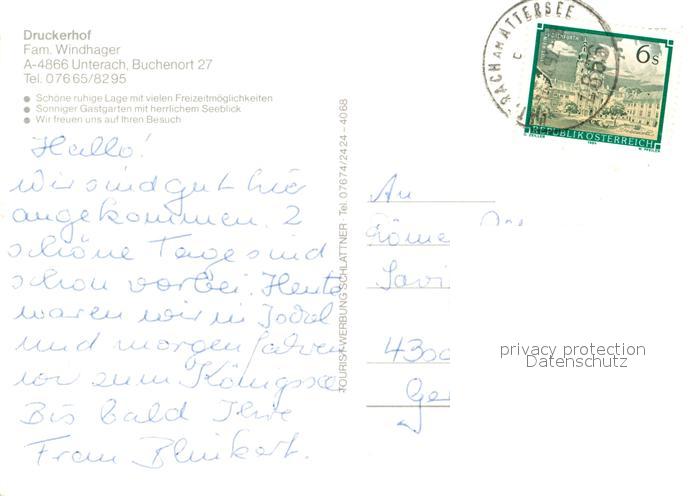 Druckerhof
Fam. Windhager
A-4866 Unterach, Buchenort 27
Tel. 07665/8295
● Schöne ruhige Lage mit vielen Freizeitmöglichkeiten
● Sonniger Gastgarten mit herrlichem Seeblick
● Wir freuen uns auf Ihren Besuch
Hallo!
Wir sind gut hier
angekommen. 2
schöne Tage sind
schon vorbei. Heute
waren wir in
und morgen fahren
wir zum Königssee
Bis bald Ihre
Frau
TOURIST-WERBUNG SCHLATTNER · Tel. 07674/2424 – 4068
ATTERSEE
6 s
REPUBLIK ÖSTERREICH
An
Röme
Savi
4300
Ge
privacy protection
Datenschutz